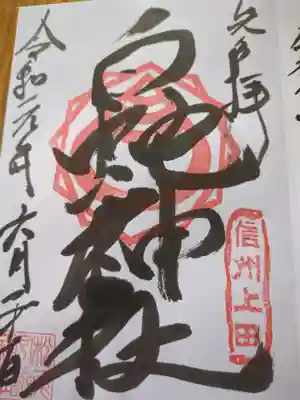 奉拝
信州上田
白蛇神社
令和元年六月